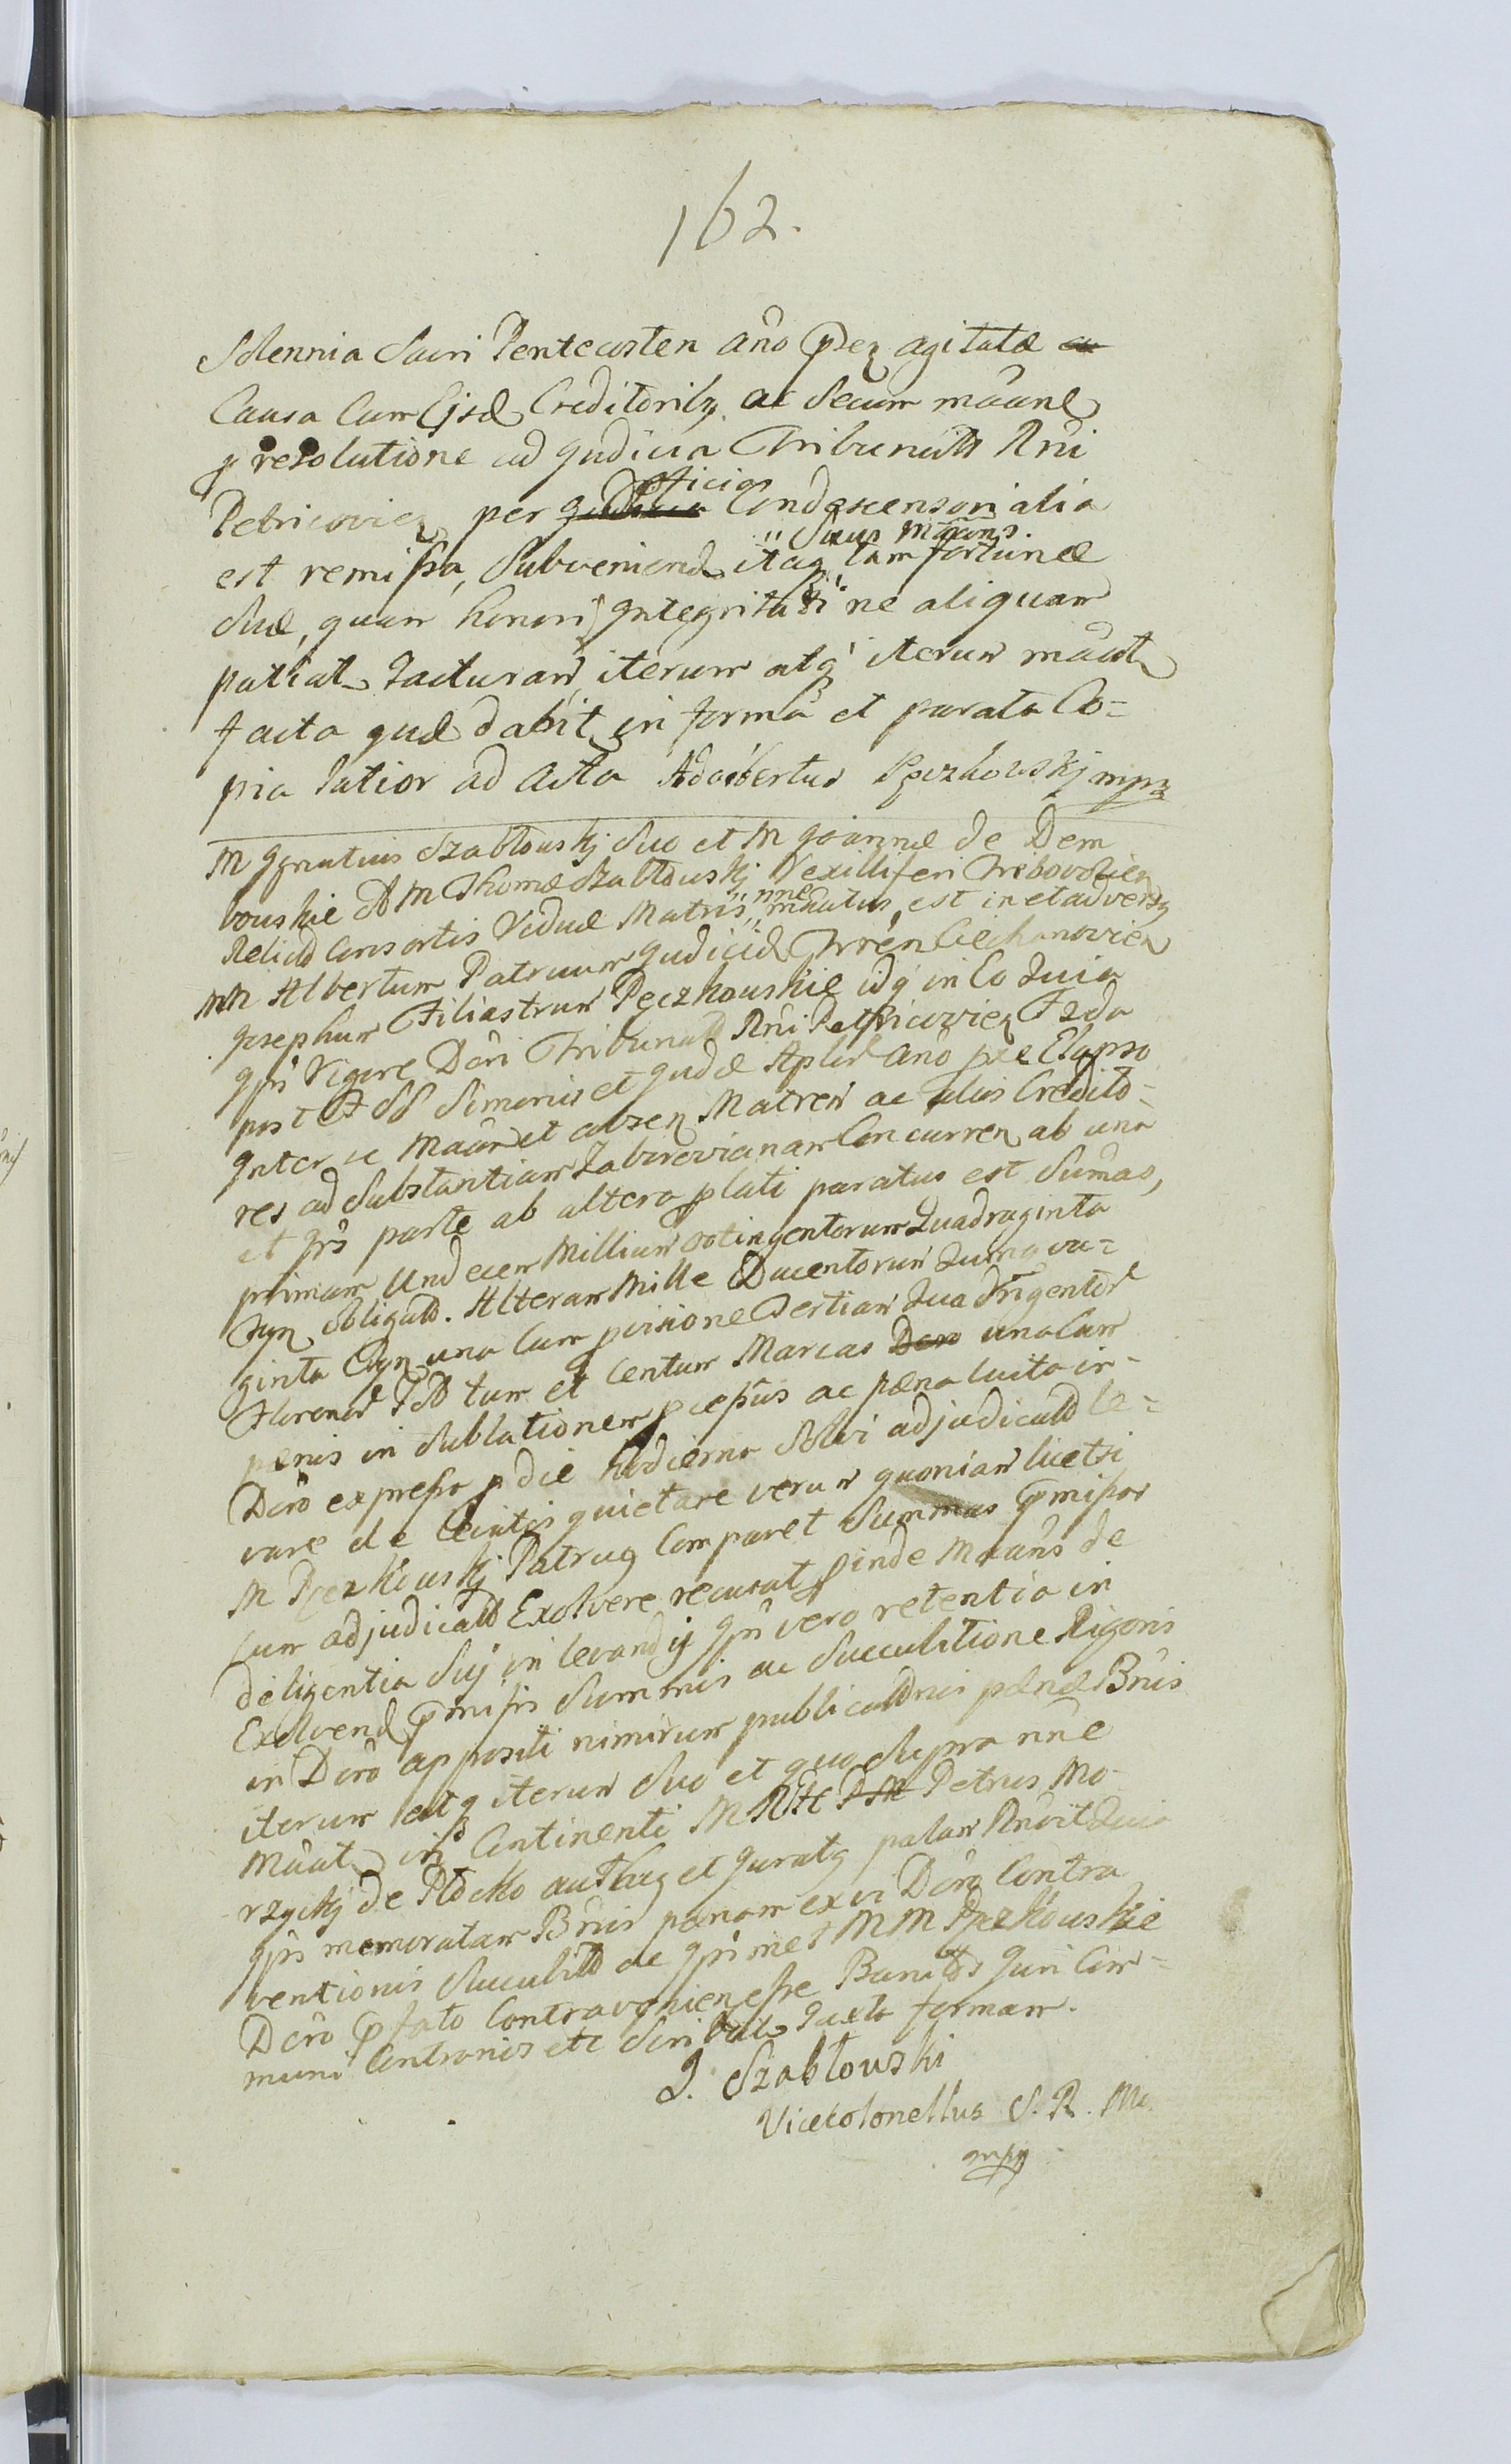 162.
Solennia Sacri Pentecosten año prez agitatæ
Causa Cum Ejsd Creditoribq ac Secum mãane
p resolutione ad Judicia Tribunalit Rni
Petricovien per officia Condescensorialia
est remissa, Subveniend itaq "Suus Mãnans. tam fortunæ
Suæ, quam honori Integritati ne aliquam
patiat Jacturam, iterum atq iterum mãat
facta quæ dabit in forma et parata Co=
pia latior ad Acta Adalbertus Pęczkowskj mpr
M Ignatius Szabłouskj Suo et M Joannæ de Dem
bouskie A M Thomæ Szabłouskj Vexilliferi Trebovolien
Relictæ Consortis Viduæ Matris nne mãatus, est in et adversq
MM Albertum Patruum Judicid Trren Ciechanovien
Josephum Filiastrum Pęczkouskie idq in Eo Quia
Ipsi Vigore Dcri Tribunal Rni Petricovien Fzda
post F SS Simonis et Judæ Aplor año pze Elapso
Inter se Mãan et absen Matrem ac alios Credito=
res ad Substantiam Zaborovianam Concurren ab una
et Ipsos parte ab altera plati paratus est Sumas,
primam Undecem Millium octingentorum Quadraginta
Tyn obligato. Alteram Mille Ducentorum Quinqua=
ginta Tyn una Cum poisione Tertiam Quadringentor
Florenor Tot tum et Centum Marcas unacum
pænis in Sublationem præpüs ac pæna lucita in
Dcro expressa p die hodierna Solvi adjudicato le=
vare de levatis quietare verum quoniam licet si
M Pęczkouskj Patruq Comparet Summas pmissas
Cum adjudicato Exolvere recusat proinde Mãans de
deligentia Suj in levandij Ipsi vero retentio in
Exolvend pmissis Summis ac Succubitione Rigoris
in Dcro appositi nimirum publicaonis pænæ Bnis
iterum atq iterum Suo et quo Supra nne
Mãat in Continenti M Petrus Mo
rzyckj de Płocko authuq et Juratq palam Rnovit Quia
Ipsos memoratam Bnis pænam ex vi Dcro Contra
ventionis Succubito de Ipsimet MM Pęczkouskie
Dcro pfato Contravenien esse Banitos Juri Com=
muni Contrarios etc Scribat Juxta formam.
J. Szabłouski
Vicecolonellus S. R. M.
mpp